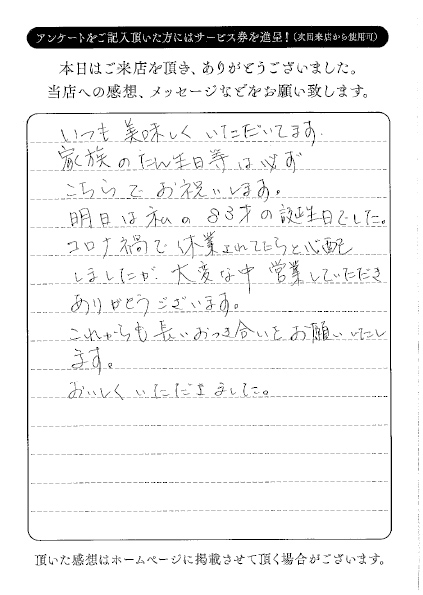 アンケートをご記入頂いた方にはサービス券を進呈！（次回来店から使用可）
本日はご来店を頂き、ありがとうございました。
当店への感想、メッセージなどをお願い致します。
いつも美味しくいただいてます.
家族のたん生日等は必ず
こちらでお祝いします。
明日は私の83才の誕生日でした。
コロナ禍で休業されてたらと心配
しましたが、大変な中 営業していただき
ありがとうございます。
これからも長いおつき合いをお願いいたし
ます。
おいしくいただきました。
頂いた感想はホームページに掲載させて頂く場合がございます。